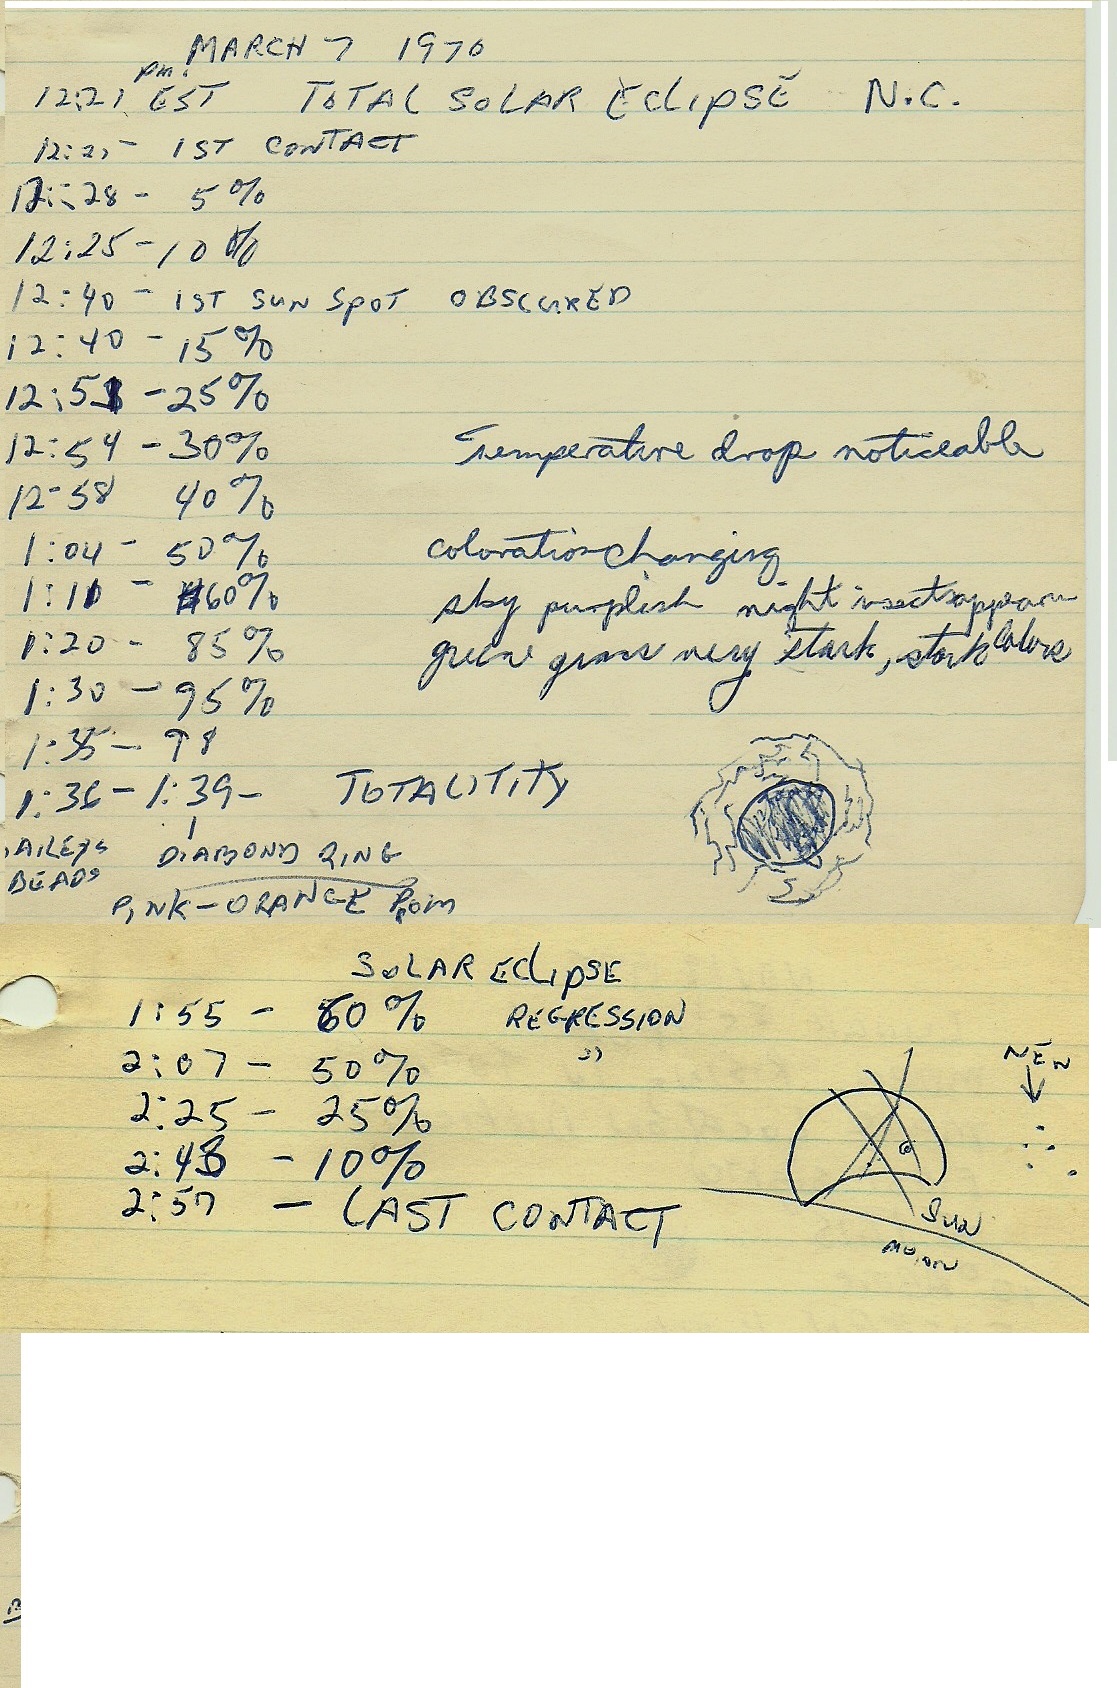 MARCH 7 1970
pm.
12:21 EST TOTAL SOLAR ECLIPSE N.C.
12:21- 1ST CONTACT
12:28 - 5%
12:25 - 10%
12:40 - 1ST SUN SPOT OBSCURED
12:40 - 15%
12:51 - 25%
12:54 - 30% Temperature drop noticeable
12-58 40%
1:04 - 50% coloration changing
1:11 - 60% sky purplish night insects appear
1:20 - 85% green grass very stark, stark colors
1:30 - 95%
1:35 - 98
1:36 - 1:39 - TOTALITITY
AILEYS DIAMOND RING
BEADS
PINK-ORANGE PROM
SOLAR ECLIPSE
1:55 - 60% REGRESSION
2:07 - 50% "
2:25 - 25%
2:43 - 10%
2:57 - LAST CONTACT
NEW
SUN
MOON